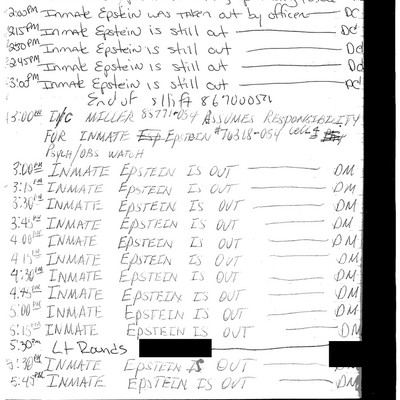 2:00PM Inmate Epstein was taken out by officer DC
2:15PM Inmate Epstein is still out DC
2:30PM Inmate Epstein is still out DC
2:45PM Inmate Epstein is still out DC
3:00PM Inmate Epstein is still out DC
End of shift
3:00PM I/C MILLER 85771-054 ASSUMES RESPONSIBILITY
FOR INMATE Esp EPSTEIN #76318-054 CELL 4
PSYCH/OBS WATCH
3:00PM INMATE EPSTEIN IS OUT DM
3:15PM INMATE EPSTEIN IS OUT DM
3:30PM INMATE EPSTEIN IS OUT DM
3:45PM INMATE EPSTEIN IS OUT DM
4:00PM INMATE EPSTEIN IS OUT DM
4:15PM INMATE EPSTEIN IS OUT DM
4:30PM INMATE EPSTEIN IS OUT DM
4:45PM INMATE EPSTEIN IS OUT DM
5:00PM INMATE EPSTEIN IS OUT DM
5:15PM INMATE EPSTEIN IS OUT DM
5:30PM Lt Rounds
5:30PM INMATE EPSTEIN IS OUT DM
5:45PM INMATE EPSTEIN IS OUT DM